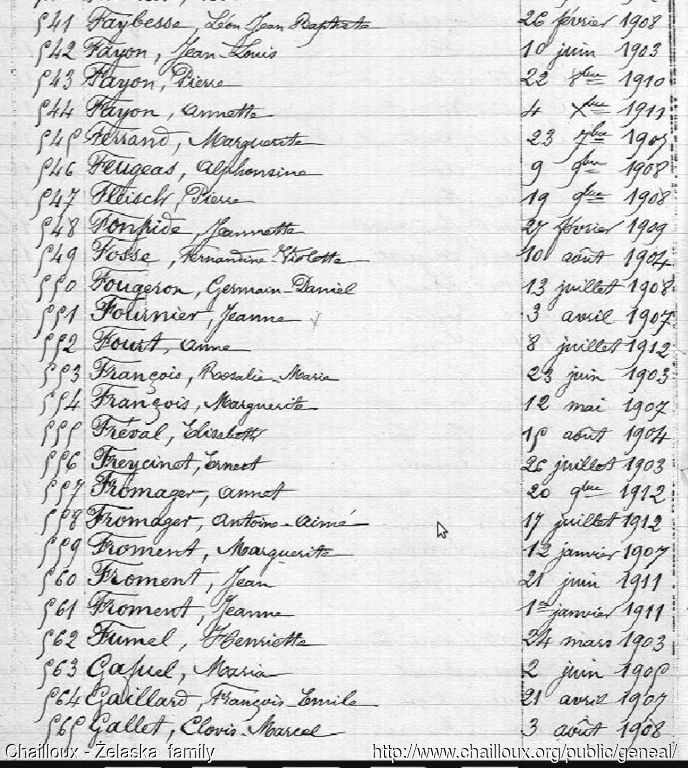 541 Faybesse, Léon Jean Baptiste 26 février 1908
542 Fayon, Jean-Louis 10 juin 1903
543 Fayon, Pierre 22 8bre 1910
544 Fayon, Annette 4 Xbre 1911
545 Ferrand, Marguerite 23 7bre 1905
546 Feugeas, Alphonsine 9 9bre 1908
547 Fleisch, Pierre 19 9bre 1908
548 Jeannette 27 février 1909
549 Fosse, Fernandine-Violette 10 août 1904
550 Fougeron, Germain-Daniel 13 juillet 1908
551 Fournier, Jeanne 3 avril 1907
552 Fourt, Anne 8 juillet 1912
553 François, Rosalie-Maria 23 juin 1903
554 François, Marguerite 12 mai 1907
555 Fréval, Elisabeth 15 août 1904
556 Freycinet, Ernest 26 juillet 1903
557 Fromager, Annet 20 9bre 1912
558 Fromager, Antoine-Aimé 17 juillet 1912
559 Froment, Marguerite 13 janvier 1907
560 Froment, Jean 21 juin 1911
561 Froment, Jeanne 1er janvier 1911
562 Fumel, Henriette 24 mars 1903
563 Maria 2 juin 1905
564 Gaillard, François-Emile 21 avril 1907
565 Gallet, Clovis-Marcel 3 août 1908
Chailloux - Želaska family http://www.chailloux.org/public/geneal/